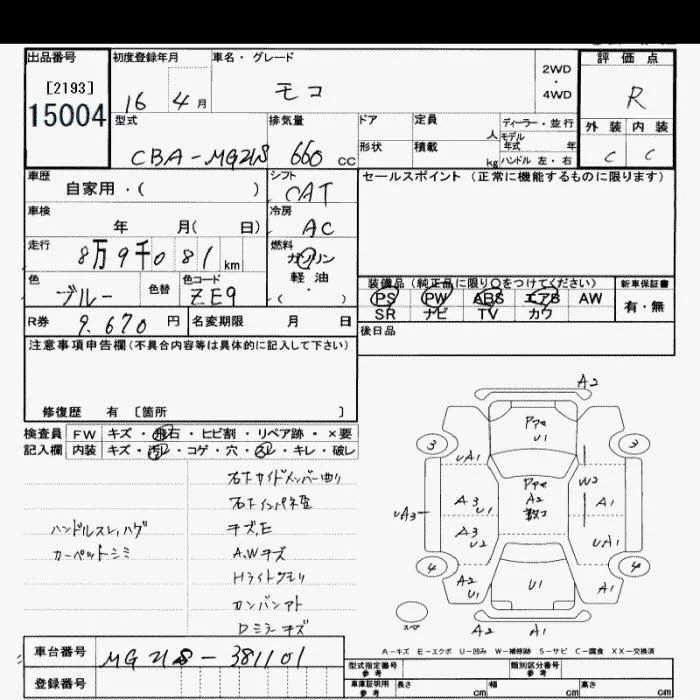 出品番号 初度登録年月 車名・グレード 2WD・4WD 評価点
[2193]
15004
16 4月 モコ R
型式 排気量 ドア 定員 人 ディーラー・並行 外装 内装
モデル年式 年
CBA-MG21S 660 CC 形状 積載 kg ハンドル 左・右 C C
車歴 シフト セールスポイント(正常に機能するものに限ります)
自家用・( ) CAT
車検 冷房
年 月( 日) AC
走行 燃料
8万9千081km ガソリン
軽油
・( )
色 色替 色コード
ブルー ZE9
装備品(純正品に限り○をつけてください) 新車保証書
PS PW ABS エアB AW 有・無
SR ナビ TV カワ
R券 9.670円 名変期限 月 日 後日品
注意事項申告欄(不具合内容等は具体的に記入して下さい)
修復歴 有 〔箇所 〕
検査員 FW キズ・飛石・ヒビ割・リペア跡・×要
記入欄 内装 キズ・汚レ・コゲ・穴・スレ・キレ・破レ
右Fサイドメンバー曲り
右Fインパネ歪
ハンドルスレ,ハゲ キズ,E
カーペットシミ A,Wキズ
Hライトクモリ
カンバンアト
Dミラーキズ
A2
U1
3 3
UA1
A2
W2
UA3 A3 U1 A1
A3 U2 UA1
4 4
A2 U1 U1 A1
スペア A2 A1
A-キズ E-エクボ U-凹み W-補修跡 S-サビ C-腐食 XX-交換済
車台番号 MG21S-381101
型式指定番号 参考 類別区分番号 参考
登録番号 車庫証明用 参考 長さ cm 幅 cm 高さ cm